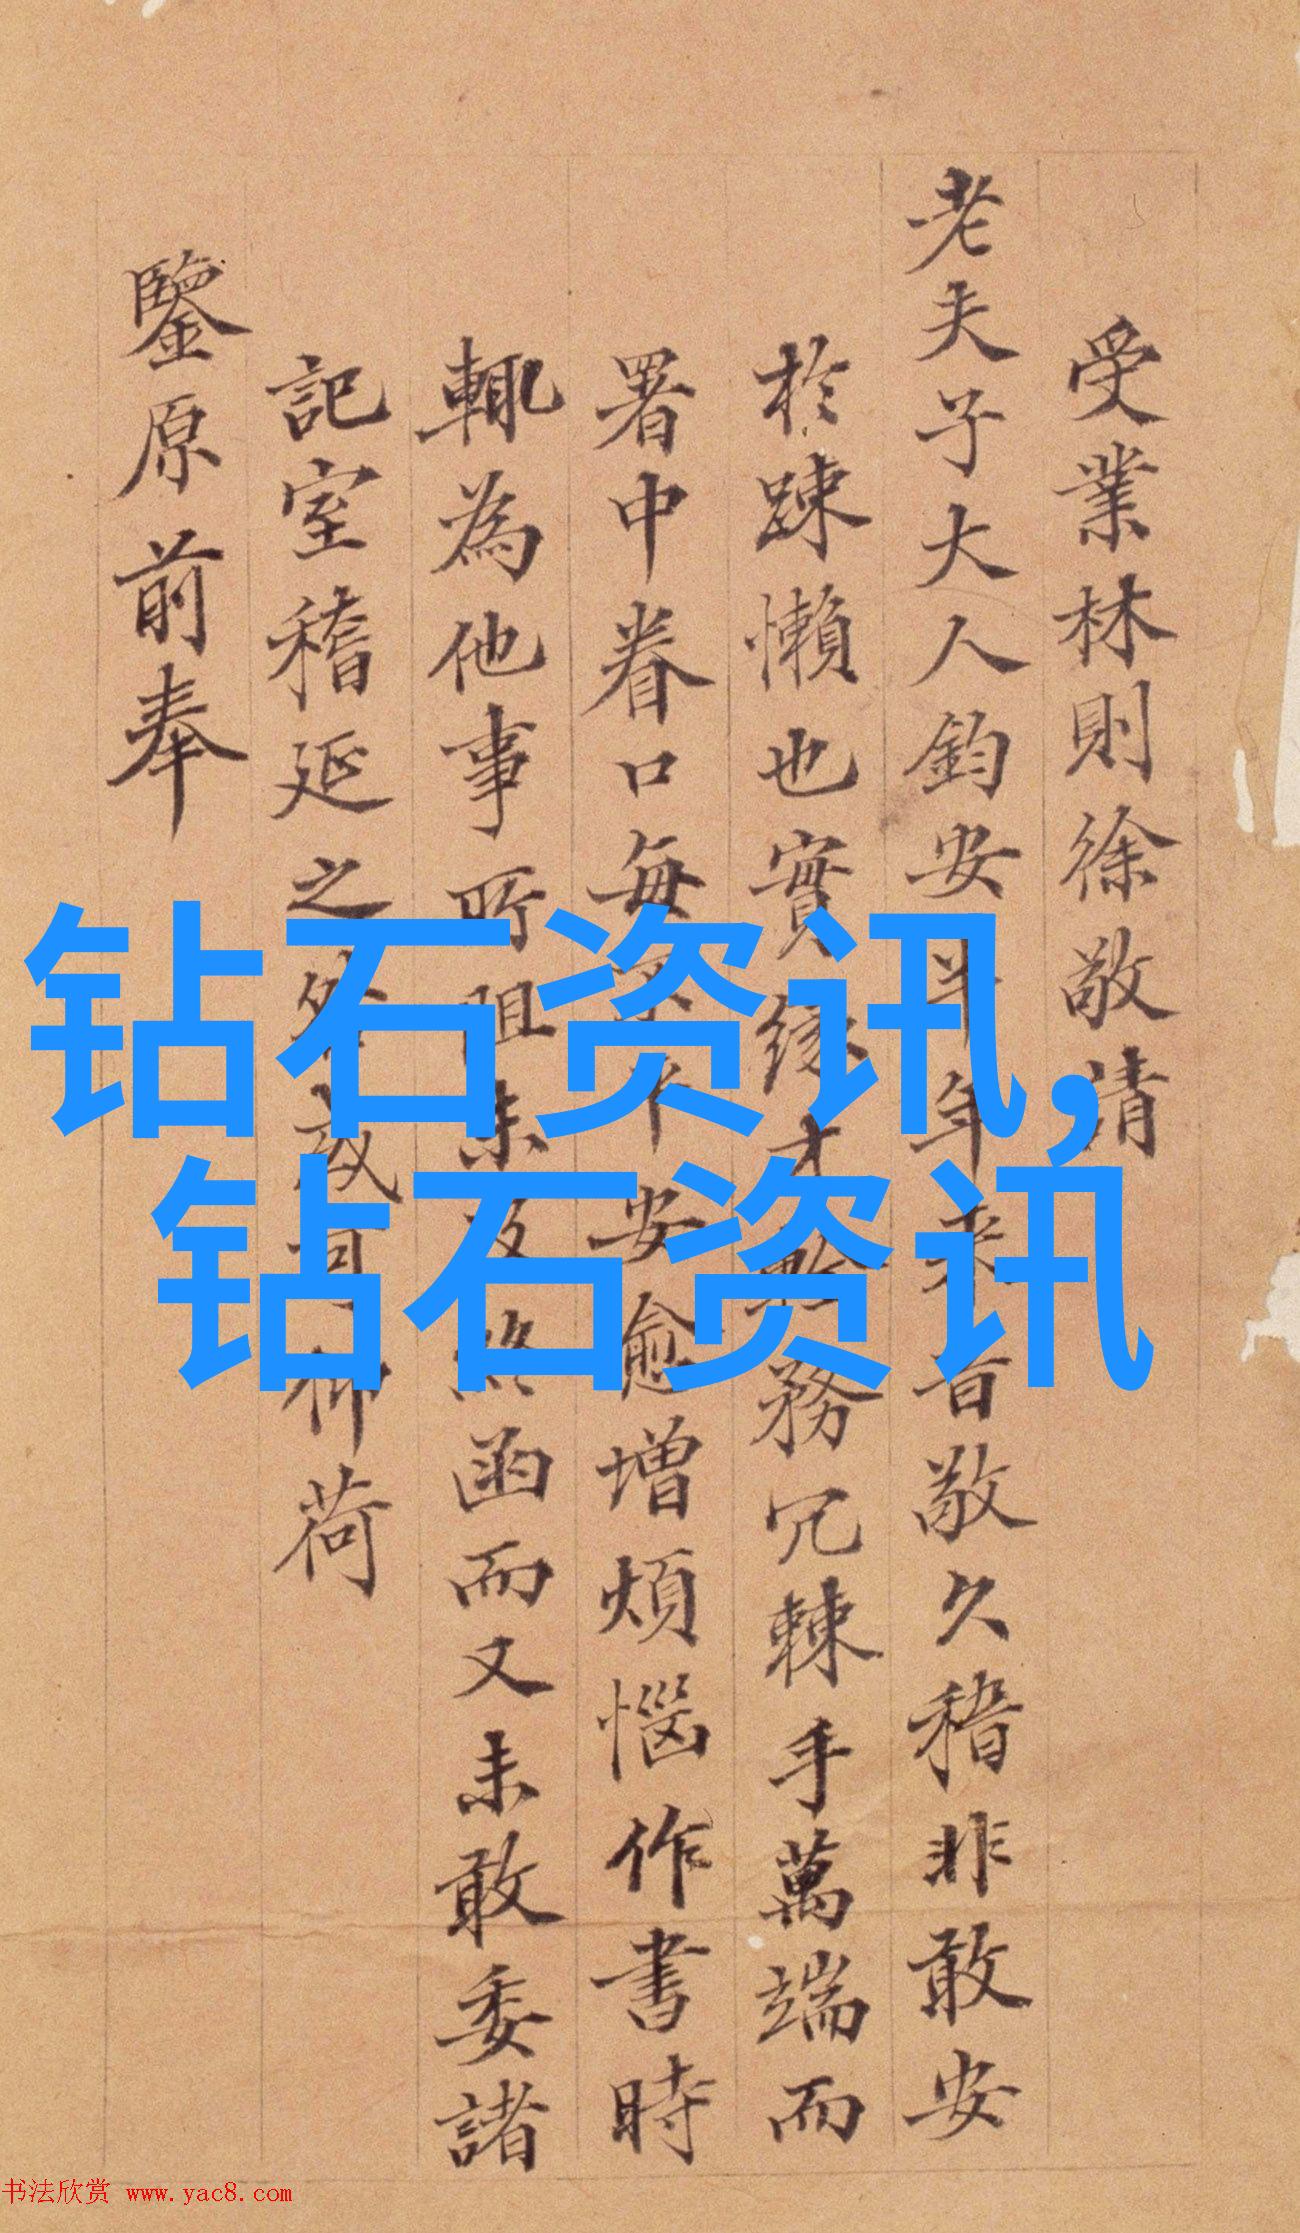 受業林則徐敬請
老夫子大人鈞安半年來音敬久稽非敢安
於踈懶也實緣才務冗棘手萬端而
署中眷口每不安愈增煩惱作書時
輒為他事所阻未及函而又未敢委諸
記室稽延之荷
鑒原前奉
钻石资讯,
钻石资讯
书法欣赏 www.yac8.com